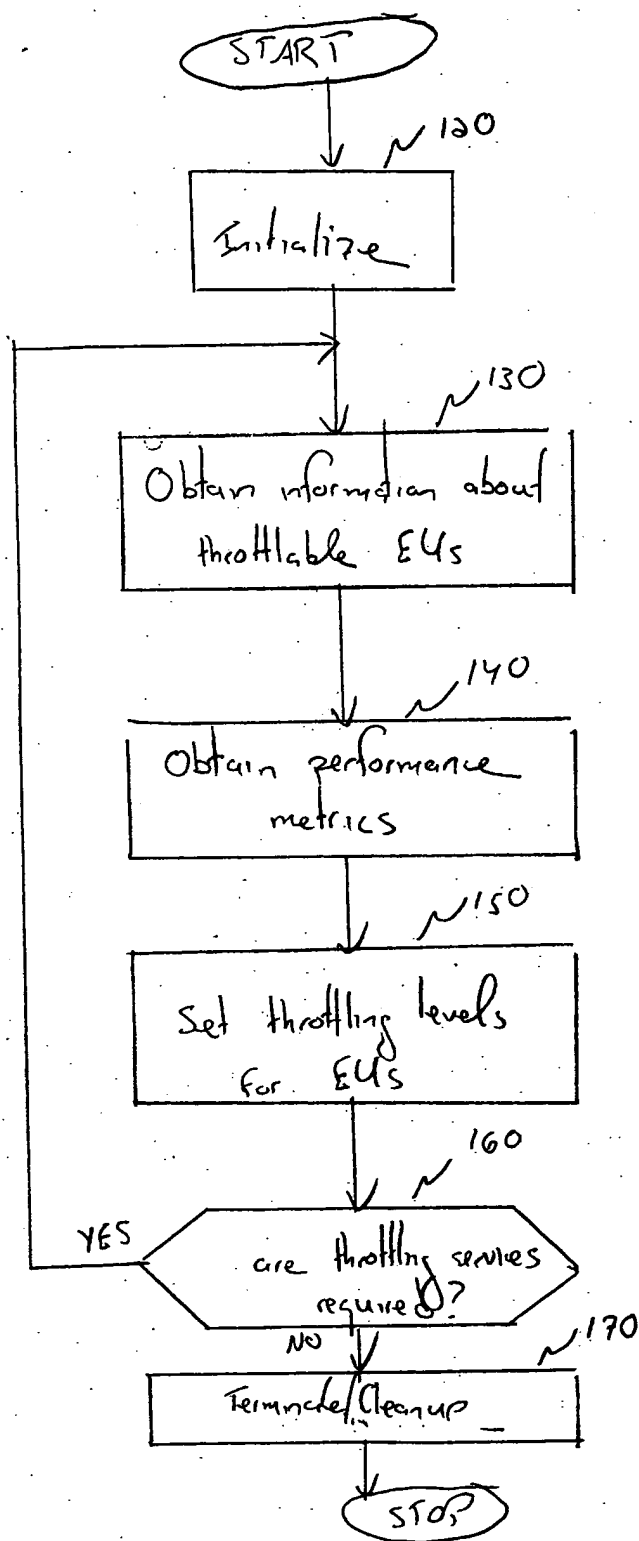 START
120
Initialize
130
Obtain information about
throttlable EUs
140
Obtain performance
metrics
150
Set throttling levels
for EUs
160
YES
are throttling services
required?
NO
170
Terminate/Cleanup
STOP